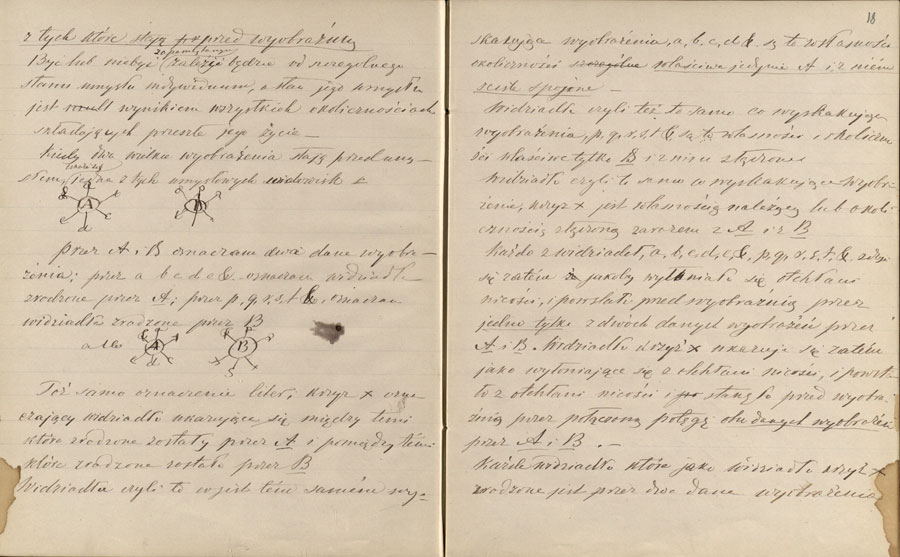 z tych które stają przed wyobraźnią
Być lub niebyć zależeć będzie od szczególnego
stanu umysłu indywiduum, a stan jego umysłu
jest wynikiem wszystkich okolicznościach
składających przeszłe jego życie –
Kiedy dwa wyobrażenia stają przed umy–
słem, jedne z tych umysłowych
A
Przez A i B oznaczam dwa dane wyobra–
żenia; przez a b c d e &. oznaczam widziadła
zrodzone przez A; przez p, q, r, s, t &, oznaczam
widziadła zrodzone przez B
albo
A B
Toż samo oznaczenie liter, krzyż x ozna–
czający widziadło ukazujące się między temi
które zrodzone zostały przez A i pomiędzy temi
które zrodzone zostały przez B
Widziadła czyli to co jest tem samém wys–
18
skakująca wyobrażenia, a, b, c, d, & są to własności
okoliczności szczególne właściwe jedynie A i z niem
ściśle spojone –
Widziadła czyli też to samo co wyskakujące
wyobrażenia, p, q, r, s, t & są to własności i okoliczno
ści właściwe tylko B i z niem złączone
Widziadło czyli to samo co wyskakujące wyobra–
żenie, krzyż x jest własnością należącą lub okoli–
cznością złączoną zarazem z A i z B
Każde z widziadeł, a, b, c, d, e &, p, q, r, s, t, & zdaje
się zatém jakoby wyłaniało się otchłani
nicości, i powstało przed wyobraźnią przez
jedno tylko z dwóch danych wyobrażeń przez
A i B. Widziadło krzyż x ukazuje się zatém
jako wyłaniające się z otchłani nicości, i powsta–
ło z otchłani nicości i stanęło przed wyobra–
źnią przez połączoną potęgę obu danych wyobrażeń
przez A i B. –
Każde widziadło które jako widziadło krzyż x
zrodzone jest przez dwa dane wyobrażenia